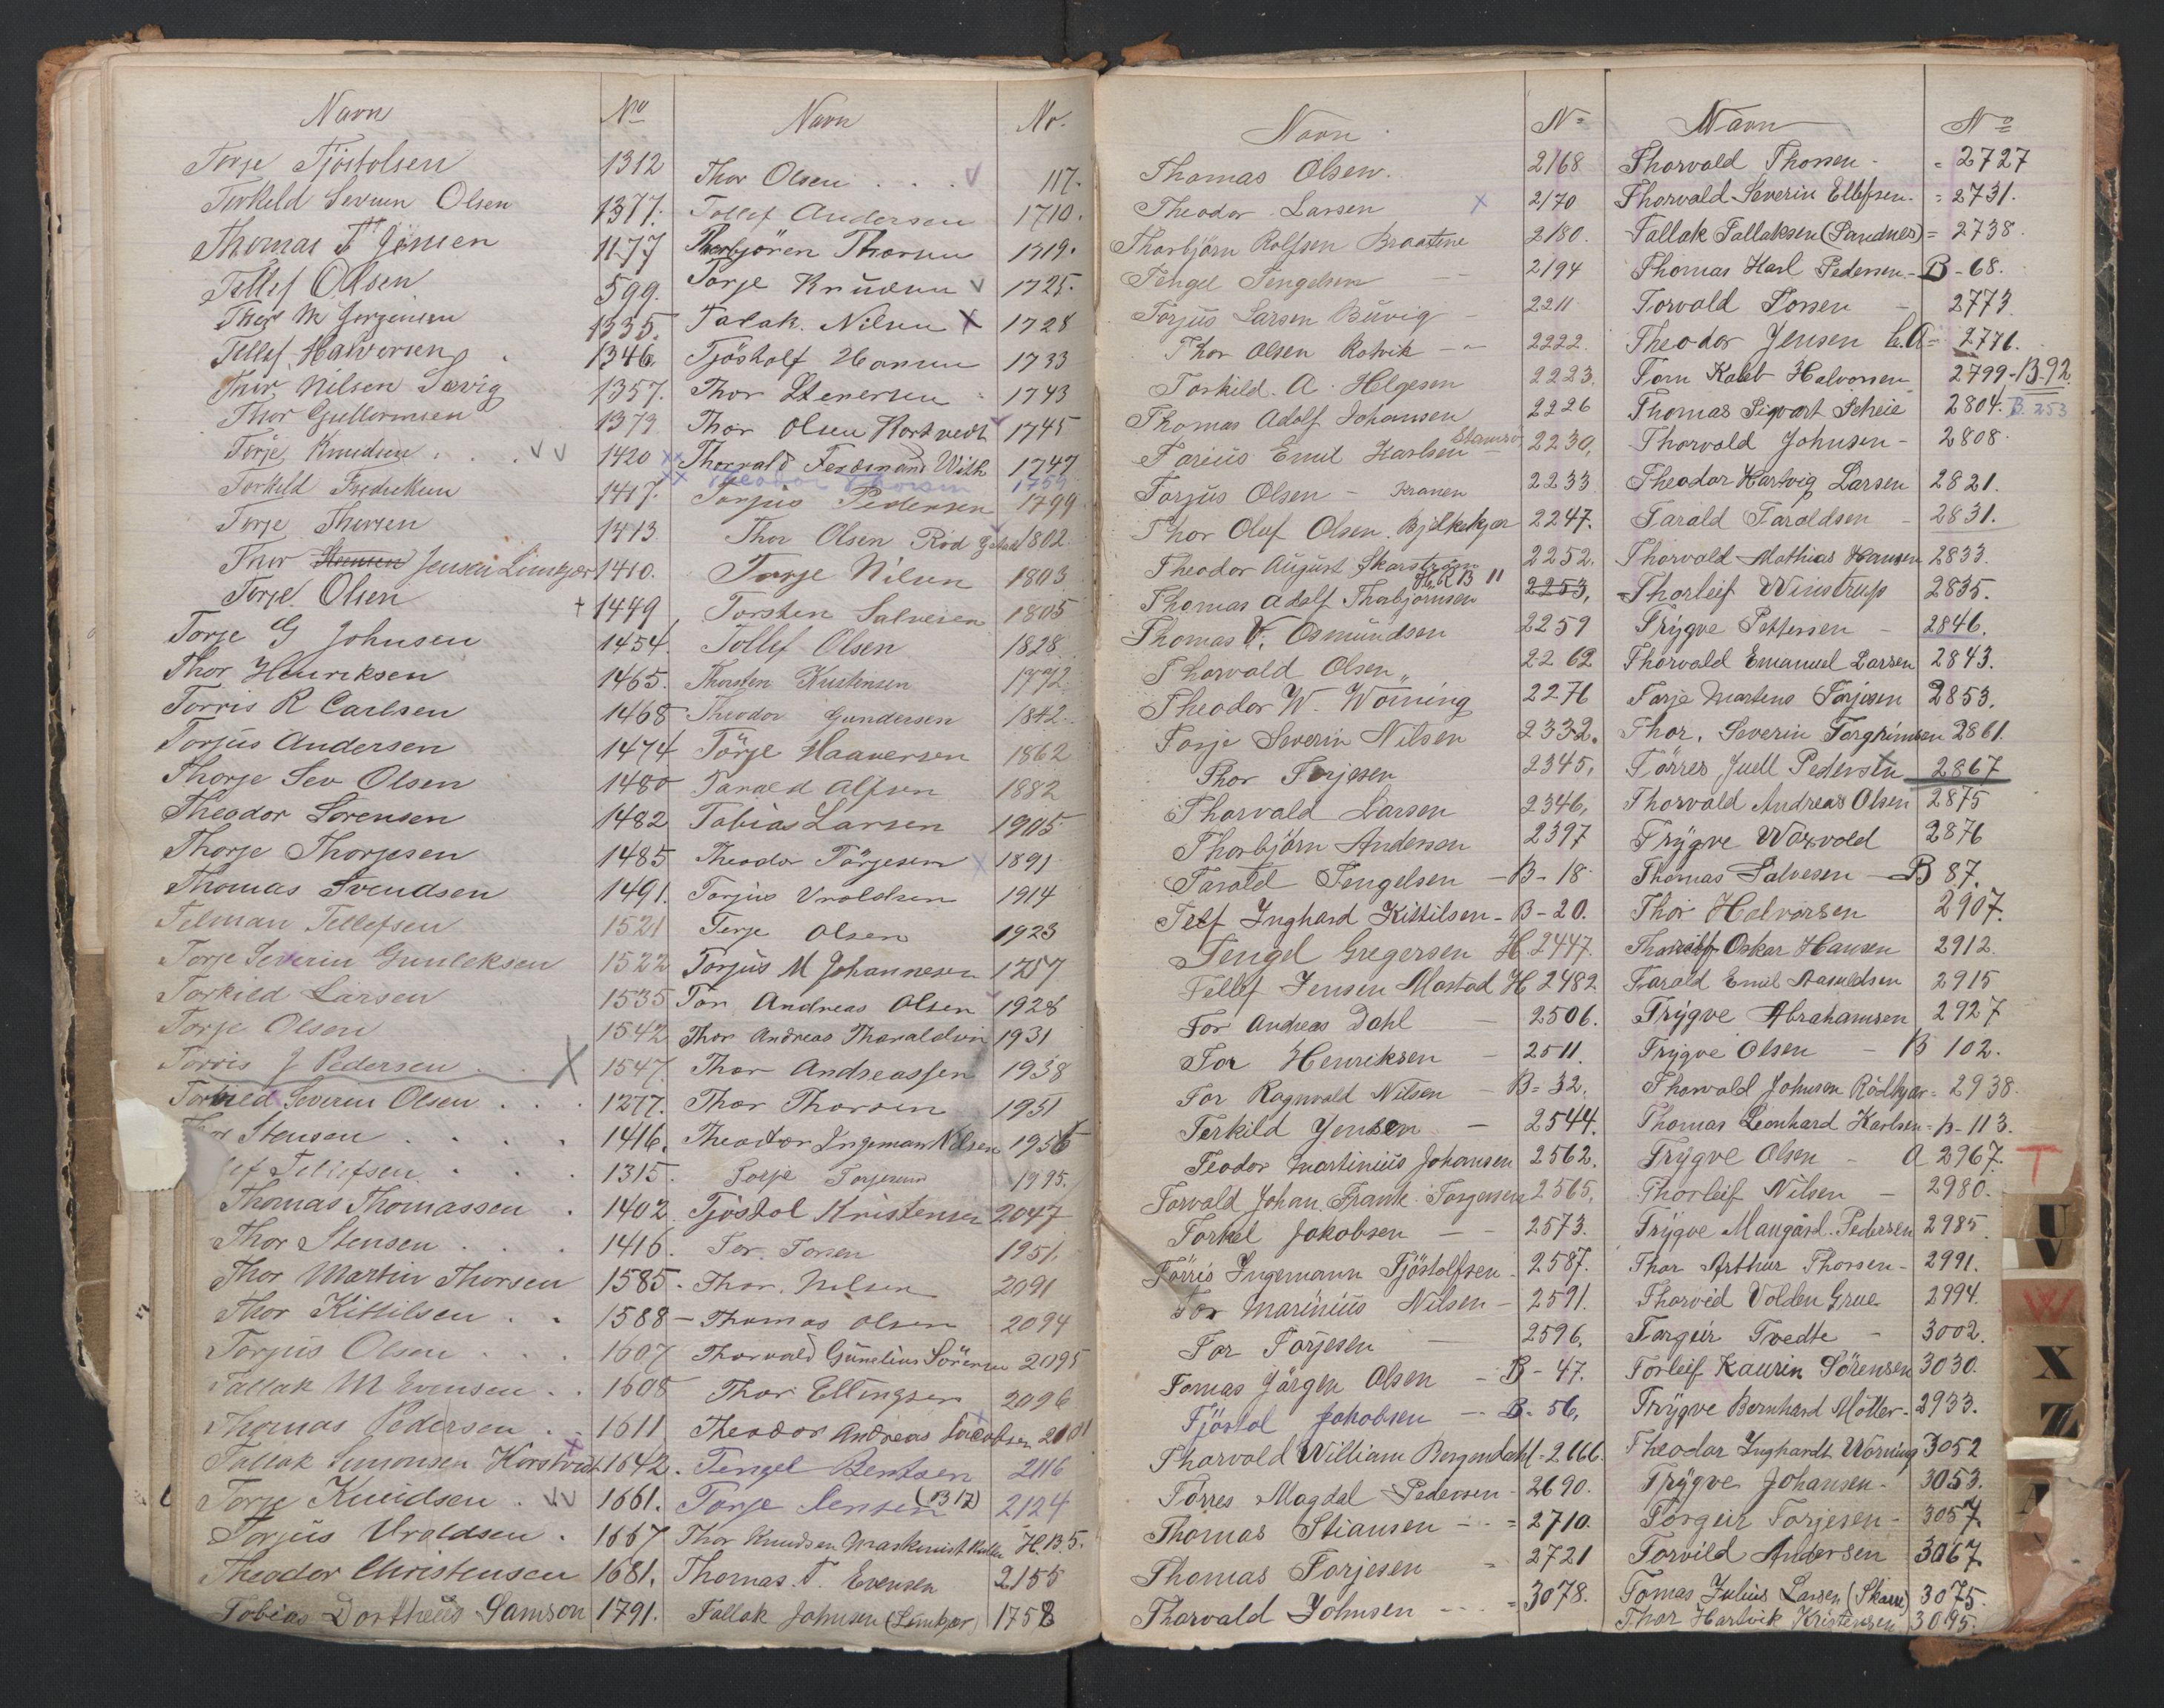 Navn No
Torje Tjöstolsen 1312
Terkeld Severin Olsen 1377.
Thomas T Jensen 1177
Tellef Olsen 599.
Thor M Jorgensen 1335.
Tellef Halversen 1346.
Thor Nilsen Sævig 1357.
Thor Gullormsen 1379
Törje Knudsen 1420
Torkeld Fredriksen 1417.
Terje Thorsen 1413
Thor Jensen Limkjær 1410.
Torje Olsen + 1449
Torje G Johnsen 1454.
Thor Henriksen 1465.
Torris R Carlsen 1468
Torjus Andersen 1474
Thorje Sev Olsen 1480
Theodor Sorensen 1482
Thorje Thorjesen 1485
Thomas Svendsen 1491.
Telman Tellefsen 1521
Torje Severin Gunleksen 1522
Torkeld Larsen 1535
Torje Olsen 1542
Torris J Pedersen X 1547.
Torkeld Severin Olsen 1277.
Stensen 1416.
Tellefsen 1315.
Thomas Thomassen 1402
Thor Stensen 1416.
Thor Martin Thorsen 1585.
Thor Kittilsen 1588
Torjus Olsen 1607
Tallak M Evensen 1608
Thomas Pedersen 1611
Tallak Simonsen Korstvedt 1642.
Torje Knudsen 1661.
Torjus Vraldsen 1667
Theodor Christensen 1681.
Tobias Dortheus Samson 1791.
Navn Nr.
Thor Olsen 117.
Tollef Andersen 1710.
Thorbjören Thorsen 1719.
Torje Knudsen 1725.
Tarak. Nilsen X 1728
Tjöstolf Hansen 1733
Thor Stenersen 1743
Thor Olsen Hortvedt 1745
Thorvald Ferdinand Wilh 1747
Theodor Thorsen 1759
Torjus Pedersen 1799
Thor Olsen Rod 1802.
Torje Nilsen 1803
Torsten Salvesen 1805
Tollef Olsen 1828.
Thorsten Kristensen 1772.
Theodor Gundersen 1842.
Törje Haaversen 1862
Tarald Alfsen 1882
Tobias Larsen 1905
Theodor Törjesen 1891
Torjus Vraldsen 1914
Terje Olsen 1923
Torjus M Johannesen 1757
Tor Andreas Olsen 1928
Thor Andreas Tharaldsen 1931
Thor Andreassen 1938
Thor Thorsen 1951
Theodor Ingeman Nilsen 1956
Torje Torjesen 1995.
Tjöstol Kristensen 2047
Tor. Torsen 1951.
Thor. Nilsen 2091
Thomas Olsen 2094
Thorvald Gunelius Sörensen 2095
Thor Ellingsen 2096
Theodor Andreas Jacobsen 2101
Tengel Bentsen 2116
Torje Jensen (B 17) 2124
Thor Knudsen H. B 5.
Thomas. T. Evensen 2155
Tallak Johnsen (Limkjær) 1758
Navn No
Thomas Olsen. 2168
Theodor Larsen x 2170
Thorbjörn Rolfsen Braatene 2180.
Tengel Tengelsen 2194
Torjus Larsen Buvig 2211
Thor Olsen Rotvik 2222.
Torkild. A. Helgesen 2223.
Thomas Adolf Johansen 2226
Tarius Emil Karlsen 2230.
Torjus Olsen - Kranen 2233
Thor Oluf Olsen. Bjelkekjær 2247.
Theodor August Skarström 2252.
Thomas Adolf Thorbjornsen 2253.
Thomas V. Osmundsen 2259
Thorvald Olsen 2262
Theodor W. Worning 2276
Torje Severin Nilsen 2332.
Thor Torjesen 2345.
Thorvald Larsen 2346.
Thorbjörn Andersen 2397
Tarald Tengelsen - B - 18.
Telf Inghard Kittilsen - B - 20.
Tengel Gregersen H 2447.
Tellef Jensen Mostad H 2482
Tor Andreas Dahl 2506.
Tor Henriksen 2511.
Tor Ragnvald Nilsen - B = 32.
Terkild Jensen 2544.
Teodor Martinius Johansen 2562.
Torvald Johan Frank. Torgersen 2565.
Torkel Jakobsen 2573.
Törris Ingemann Tjöstolfsen 2587.
Tor Marinius Nilsen 2591.
Tor Torjesen 2596.
Tomas Jörgen Olsen - B - 47.
Tjöstol Jakobsen - B. 56.
Thorvald William Bergendahl = 2666.
Törres Magdal Pedersen 2690.
Thomas Stiansen = 2710.
Thomas Torjesen 2721
Thorvald Johnsen = 3078.
Navn No
Thorvald Thorsen = 2727
Thorvald Severin Ellefsen. = 2731.
Tallak Tallaksen (Sandnes) = 2738.
Thomas Karl Pedersen - B - 68.
Torvald Torsen 2773
Theodor Jensen 2776.
Tom Kaleb Halvorsen 2799 - B - 92.
Thomas Sigvart Scheie 2804. B. 253
Thorvald Johnsen - 2808.
Theodor Hartvig Larsen 2821.
Tarald Taraldsen 2831.
Thorvald Mathias Hansen 2833.
Thorleif Winstrup 2835.
Trygve Pettersen 2846.
Thorvald Emanuel Larsen 2843.
Torje Martens Torjesen 2853.
Thor. Severin Torgrimsen 2861.
Törres Juell Pedersen 2867
Thorvald Andreas Olsen 2875
Trygve Waxvold 2876
Thomas Salvesen B 87.
Thor Halvorsen 2907.
Thorleif Oskar Hansen 2912.
Tarald Emil Aasuldsen 2915
Trygve Abrahamsen 2927
Trygve Olsen - B 102.
Thorvald Johnsen Rödkjær = 2938.
Thomas Leonhard Karlsen = B - 113.
Trygve Olsen - A 2967.
Thorleif Nilsen 2980.
Trygve Maugård. Pedersen 2985
Thor Arthur Thorsen - 2991.
Thorvid Volden Grue 2994.
Torgeir Tvedte 3002.
Torleif Kaurin Sörensen 3030.
Trygve Bernhard Möller - 2933.
Theodor Inghardt Worning 3052
Trygve Johansen - 3053.
Torgeir Torjesen - 3057.
Torvild Andersen 3067.
Tomas Julius Larsen (Skare) 3075.
Thor Hartvik Kristensen 3095.
T
U
V
W
X
Z